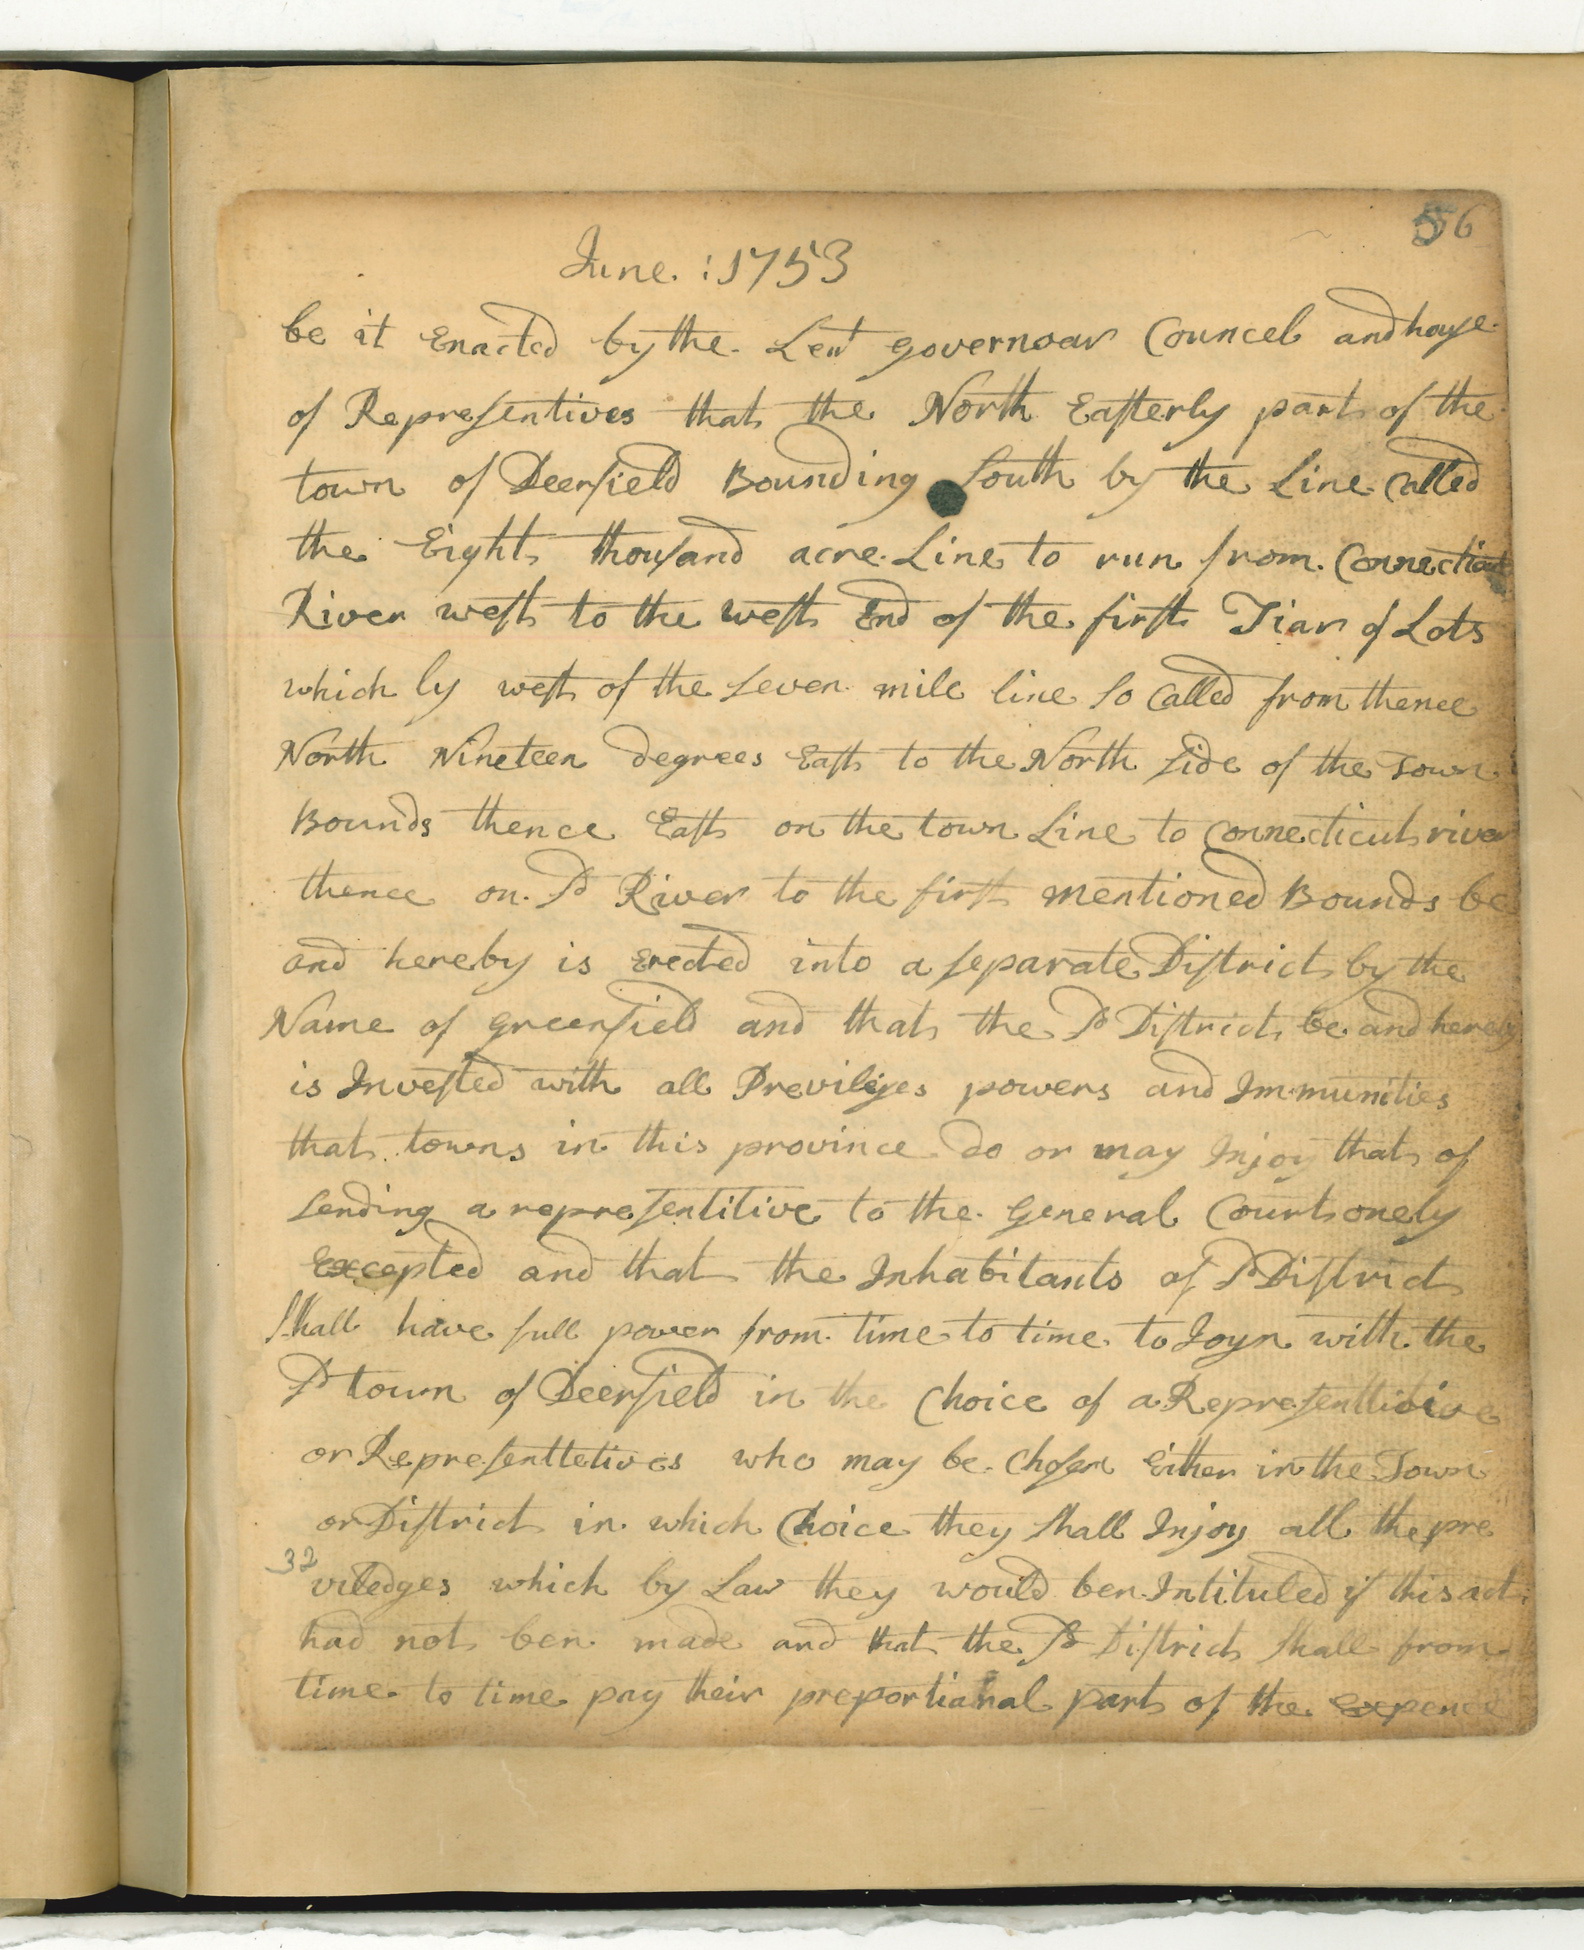 56
June : 1753
be it Enacted by the Leut governoar Councel and house
of Representives that the North Easterly part of the
town of Deerfield Bounding South by the Line Called
the Eight thousand acre Line to run from Connecticut
River west to the west End of the first Tiar of Lots
which ly west of the seven mile line so Called from thence
North Nineteen degrees East to the North side of the Town
Bounds thence East on the town Line to Connecticut river
thence on sd River to the first mentioned Bounds be
and hereby is Erected into a separate District by the
Name of greenfield and that the sd District be and hereby
is Invested with all Previliges powers and Immunities
that towns in this province do or may Injoy that of
sending a representitive to the General Court onely
Excepted and that the Inhabitants of sd District
shall have full power from time to time to Joyn with the
sd town of Deerfield in the Choice of a Representtitive
or Representtetives who may be Chosen Either in the Town
or District in which Choice they shall Injoy all the pre
32
viledges which by Law they would ben Intituled if this act
had not ben made and that the sd District shall from
time to time pay their preportianal part of the Expence